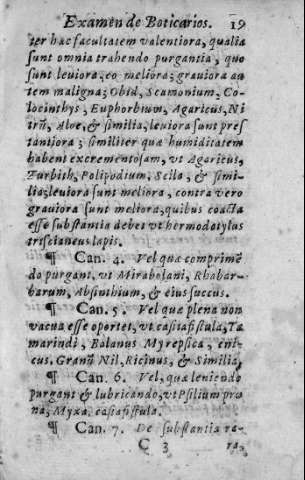 Examen de Boticarios. 19
ter hac facultatem valentiora, qualia
sunt omnia trahendo purgantia, quo
sunt leuiora, eo meliora; grauiora au
tem maligna; Obid, Scamonium, Co-
locinthys, Euphorbium, Agaricus, Ni
trũ, Aloe, & similia, leuiora sunt pres
tantiora; similiter quæ humiditatem
habent excrementosam, vt Agaricus,
Turbith, Polipodium, Scila, & simi-
lia; leuiora sunt meliora, contra vero
grauiora sunt meliora, quibus coacta
esse substantia debet vt hermodatylus
triscianeus lapis.
¶ Can. 4. Vel quæ comprimẽ
do purgant. vt Mirabolani, Rhabar-
barum, Absinthium, & eius succus.
¶ Can. 5. Vel quæ plena non
vacua esse oportet, vt casiafistula, Ta
marindi, Bolanus Myrepsica, cni-
cus. Granũ Nil, Ricinus, & Similia,
¶ Can. 6. Vel, quæ leniendo
purgant & lubricando, vt Psilium pru
na, Myxa, casiafistula.
¶ Can. 7. De substantia ra-
C 3 ra,